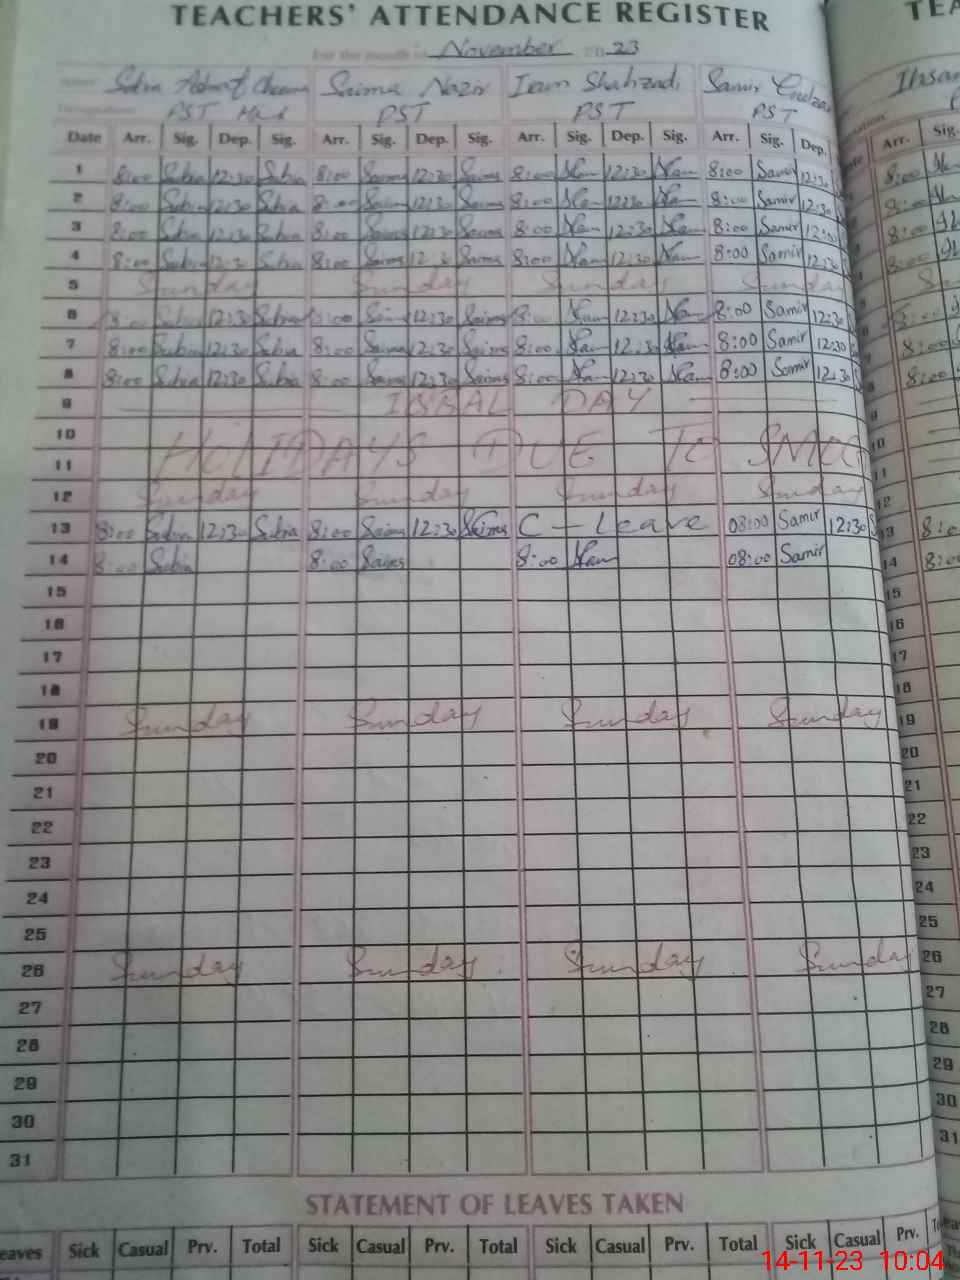 TEACHERS' ATTENDANCE REGISTER TEA
For the month of November 2023
Saima Nazir Iram Shahzadi Samir Ihsan
PST PST PST PST
Date Arr. Sig. Dep. Sig. Arr. Sig. Dep. Sig. Arr. Sig. Dep. Sig. Arr. Sig. Dep. Date Arr. Sig.
1 8:00 Subia 12:30 Subia 8:00 Saima 12:30 Saima 8:00 12:30 8:00 Samir 12:30 8:00
2 8:00 Subia 12:30 Subia 8:00 Saima 12:30 Saima 8:00 12:30 8:00 Samir 12:30 8:00
3 8:00 Subia 12:30 Subia 8:00 Saima 12:30 Saima 8:00 12:30 8:00 Samir 12:30 8:00
4 8:00 Subia 12:30 Subia 8:00 Saima 12:30 Saima 8:00 12:30 8:00 Samir 12:30 8:00
5 Sunday Sunday Sunday Sunday
6 8:00 Subia 12:30 Subia 8:00 Saima 12:30 Saima 8:00 12:30 8:00 Samir 12:30 6 8:00
7 8:00 Subia 12:30 Subia 8:00 Saima 12:30 Saima 8:00 12:30 8:00 Samir 12:30 7 8:00
8 8:00 Subia 12:30 Subia 8:00 Saima 12:30 Saima 8:00 12:30 8:00 Samir 12:30 8 8:00
9 IQBAL DAY 9
10 10
11 HOLIDAYS DUE TO SMOG 11
12 Sunday Sunday Sunday Sunday 12
13 8:00 Subia 12:30 Subia 8:00 Saima 12:30 Saima C - Leave 08:00 Samir 12:30 13 8:0
14 8:00 Subia 8:00 Saima 8:00 08:00 Samir 14 8:00
15 15
16 16
17 17
18 18
19 Sunday Sunday Sunday Sunday 19
20 20
21 21
22 22
23 23
24 24
25 25
26 Sunday Sunday Sunday Sunday 26
27 27
28 28
29 29
30 30
31 31
STATEMENT OF LEAVES TAKEN
eaves Sick Casual Prv. Total Sick Casual Prv. Total Sick Casual Prv. Total Sick Casual Prv.
14-11-23 10:04